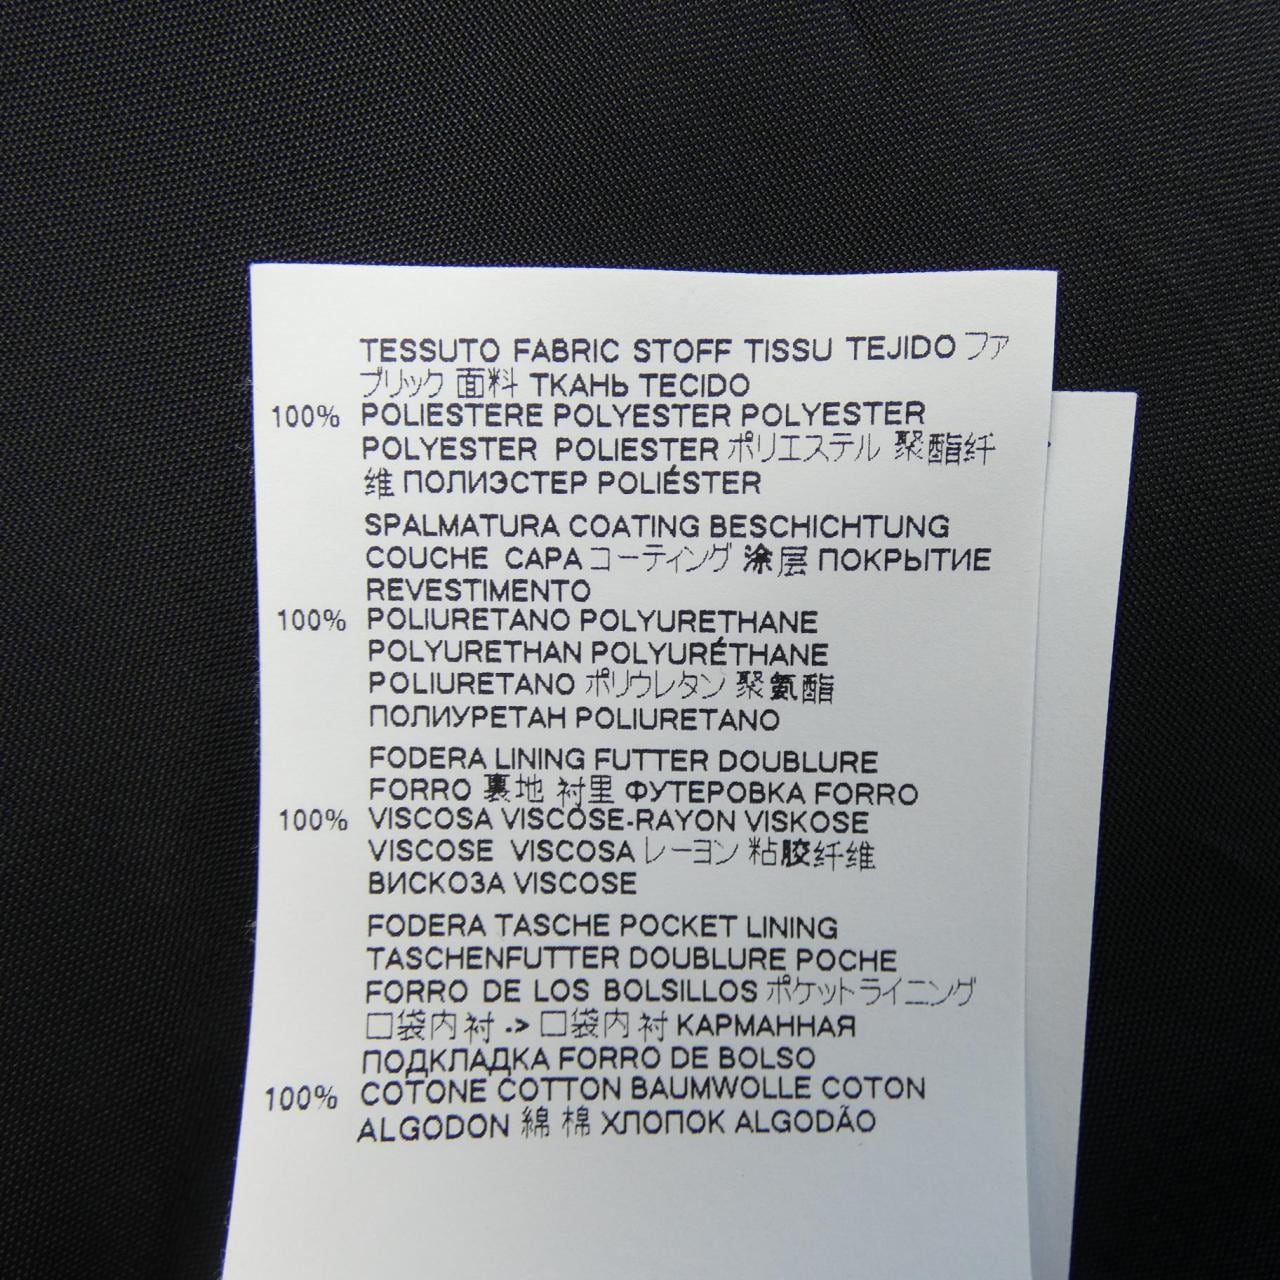 TESSUTO FABRIC STOFF TISSU TEJIDO ファ
ブリック 面料 ТКАНЬ TECIDO
100% POLIESTERE POLYESTER POLYESTER
POLYESTER POLIESTER ポリエステル 聚酯纤
维 ПОЛИЭСТЕР POLIÉSTER
SPALMATURA COATING BESCHICHTUNG
COUCHE CAPA コーティング 涂层 ПОКРЫТИЕ
REVESTIMENTO
100% POLIURETANO POLYURETHANE
POLYURETHAN POLYURÉTHANE
POLIURETANO ポリウレタン 聚氨酯
ПОЛИУРЕТАН POLIURETANO
FODERA LINING FUTTER DOUBLURE
FORRO 裏地 衬里 ФУТЕРОВКА FORRO
100% VISCOSA VISCOSE-RAYON VISKOSE
VISCOSE VISCOSA レーヨン 粘胶纤维
ВИСКОЗА VISCOSE
FODERA TASCHE POCKET LINING
TASCHENFUTTER DOUBLURE POCHE
FORRO DE LOS BOLSILLOS ポケットライニング
口袋内衬 -> 口袋内衬 КАРМАННАЯ
ПОДКЛАДКА FORRO DE BOLSO
100% COTONE COTTON BAUMWOLLE COTON
ALGODON 綿 棉 ХЛОПОК ALGODÃO